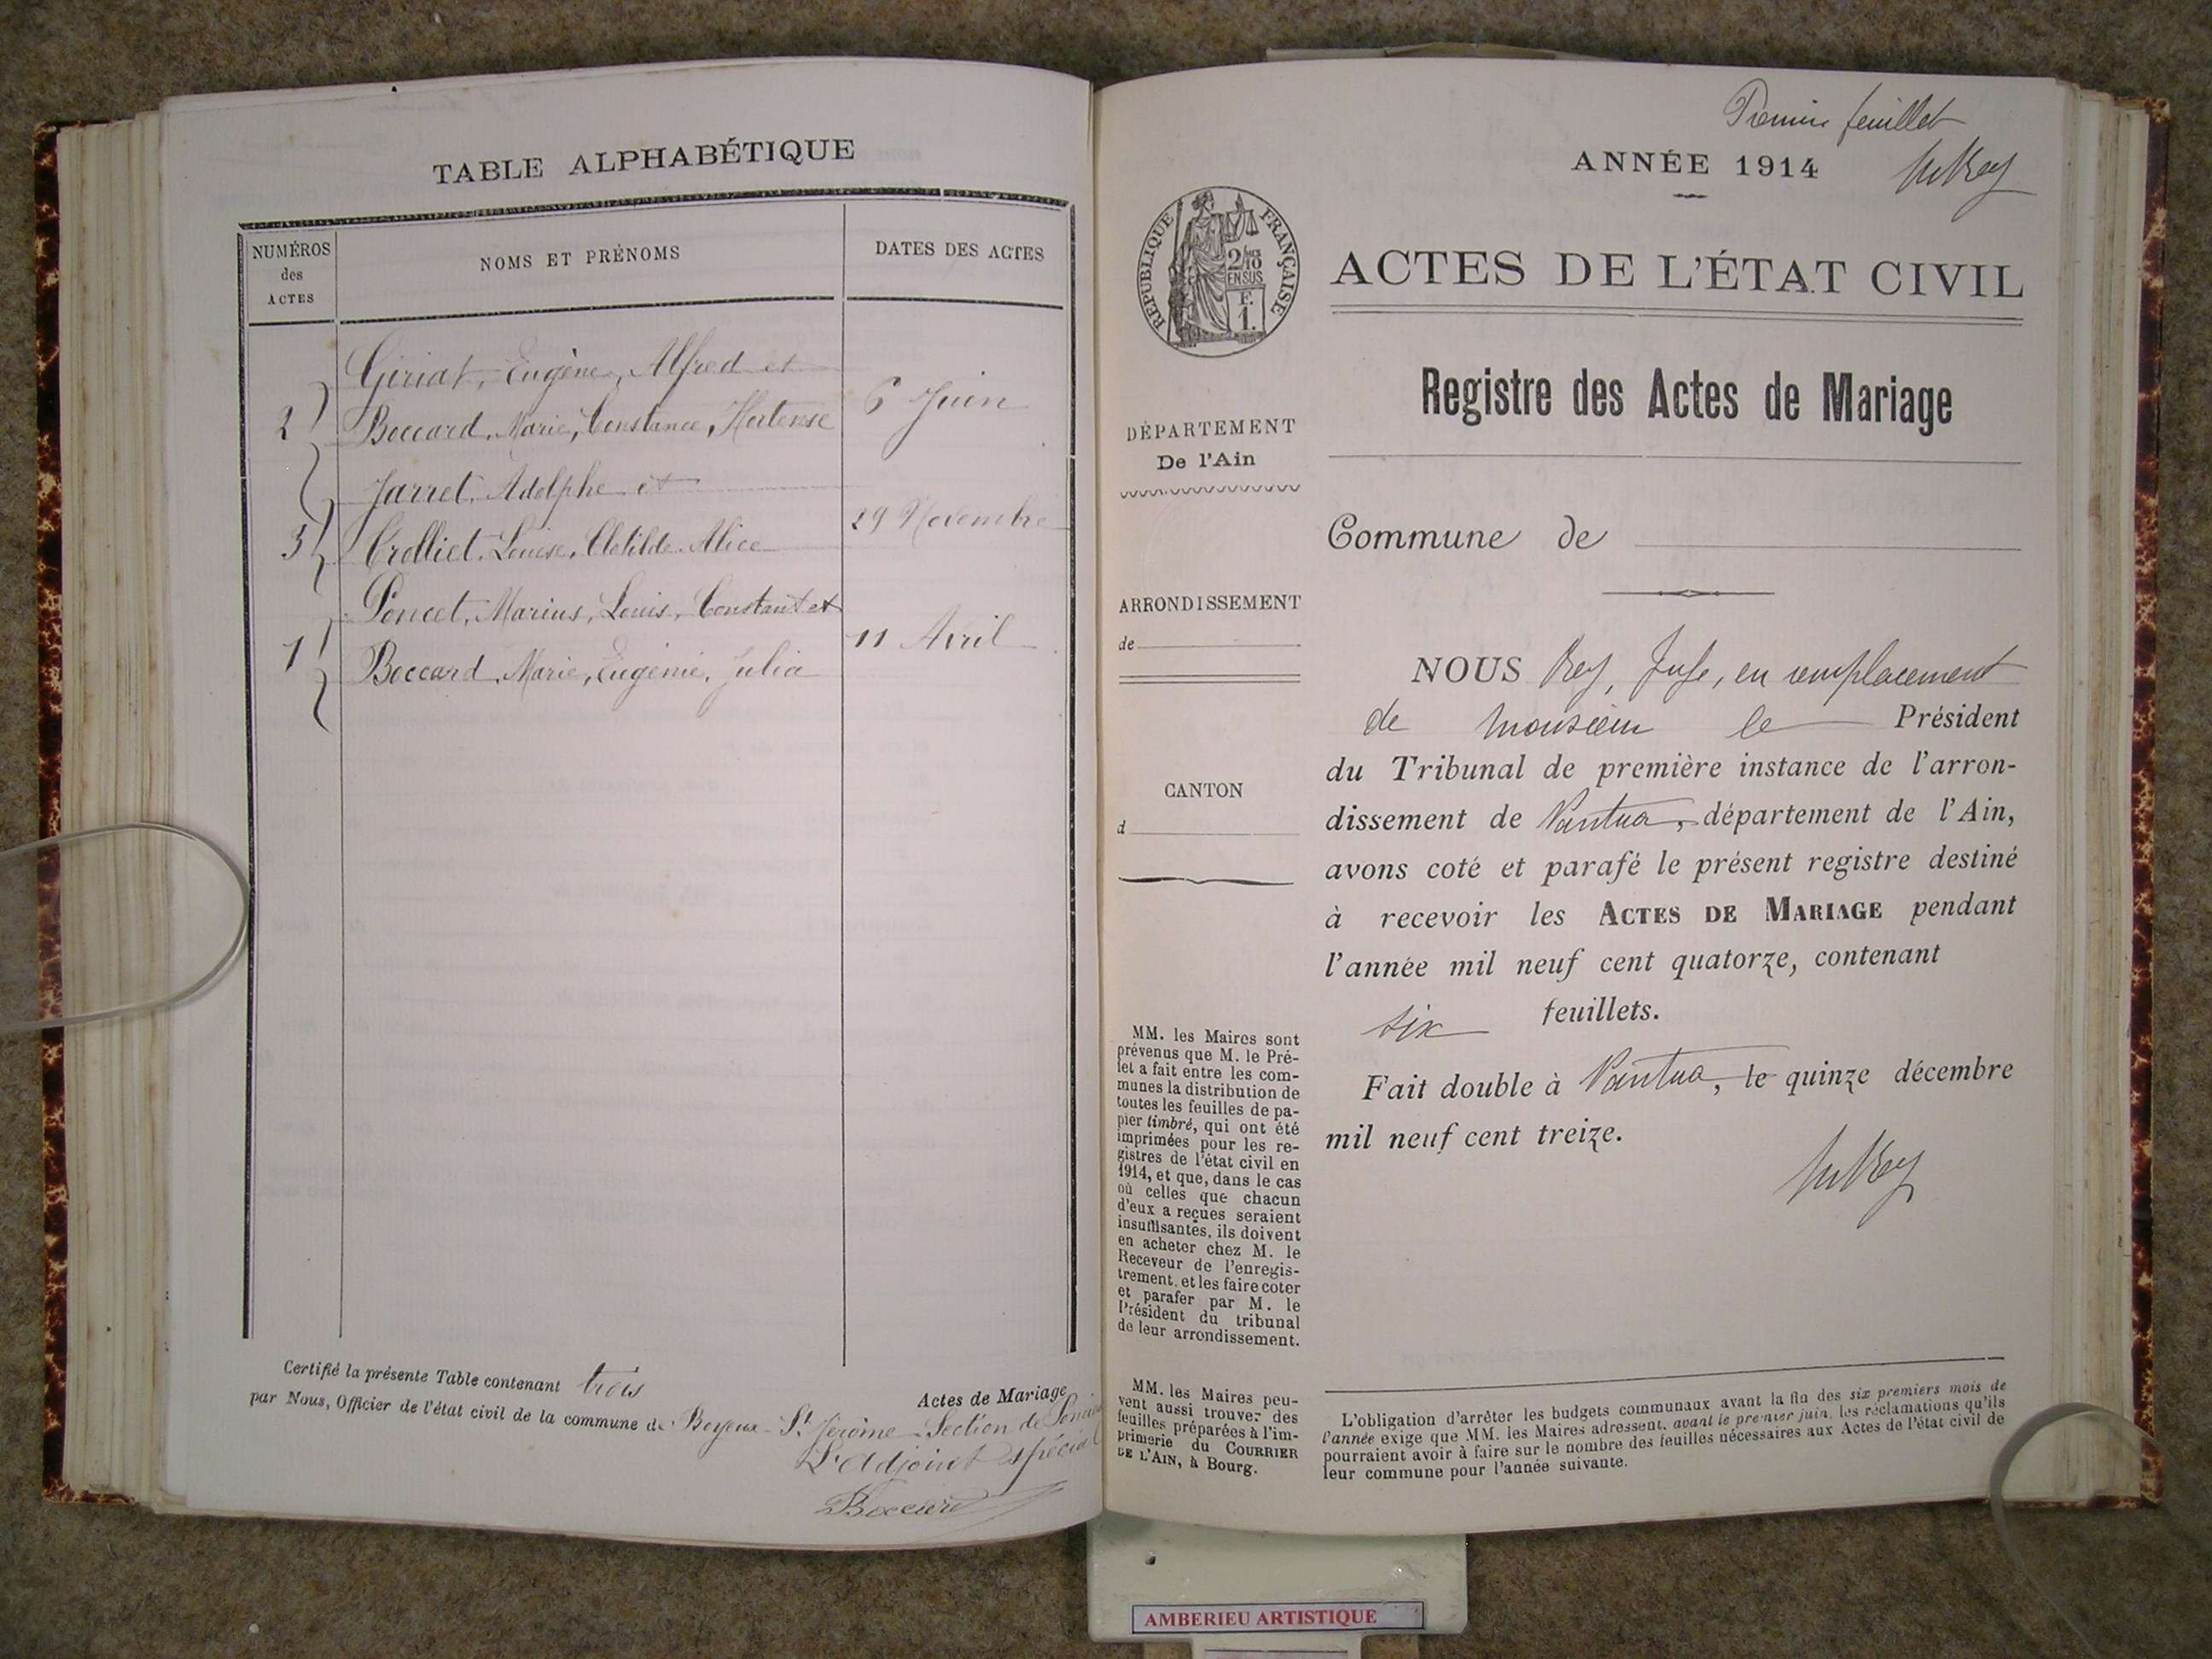 TABLE ALPHABÉTIQUE
NUMÉROS
des
ACTES
NOMS ET PRÉNOMS
DATES DES ACTES
Giriat, Eugène, Alfred et
2 Boccard, Marie, Constance, Hortense
6 Juin
Jarret, Adolphe et
3 Crolliet, Louise, Clotilde, Alice
29 Novembre
Poncet, Marius, Louis, Constant et
1 Boccard, Marie, Eugénie, Julia
11 Avril
Certifié la présente Table contenant trois
Actes de Mariage
par Nous, Officier de l'état civil de la commune de Boyeux-St Jérôme - Section de
L'Adjoint spécial
Boccard
Premier feuillet
ANNÉE 1914
RÉPUBLIQUE FRANÇAISE
2/10
EN SUS
F.
1.
ACTES DE L'ÉTAT CIVIL
Registre des Actes de Mariage
DÉPARTEMENT
De l'Ain
Commune de
ARRONDISSEMENT
de
CANTON
d
NOUS Rey, Juge, en remplacement
de monsieur le Président
du Tribunal de première instance de l'arron-
dissement de Nantua, département de l'Ain,
avons coté et parafé le présent registre destiné
à recevoir les ACTES DE MARIAGE pendant
l'année mil neuf cent quatorze, contenant
six feuillets.
Fait double à Nantua, le quinze décembre
mil neuf cent treize.
MM. les Maires sont
prévenus que M. le Pré-
fet a fait entre les com-
munes la distribution de
toutes les feuilles de pa-
pier timbré, qui ont été
imprimées pour les re-
gistres de l'état civil en
1914, et que, dans le cas
où celles que chacun
d'eux a reçues seraient
insuffisantes, ils doivent
en acheter chez M. le
Receveur de l'enregis-
trement, et les faire coter
et parafer par M. le
Président du tribunal
de leur arrondissement.
MM. les Maires peu-
vent aussi trouver des
feuilles préparées à l'im-
primerie du COURRIER
DE L'AIN, à Bourg.
L'obligation d'arrêter les budgets communaux avant la fin des six premiers mois de
l'année exige que MM. les Maires adressent, avant le premier juin, les réclamations qu'ils
pourraient avoir à faire sur le nombre des feuilles nécessaires aux Actes de l'état civil de
leur commune pour l'année suivante.
AMBERIEU ARTISTIQUE